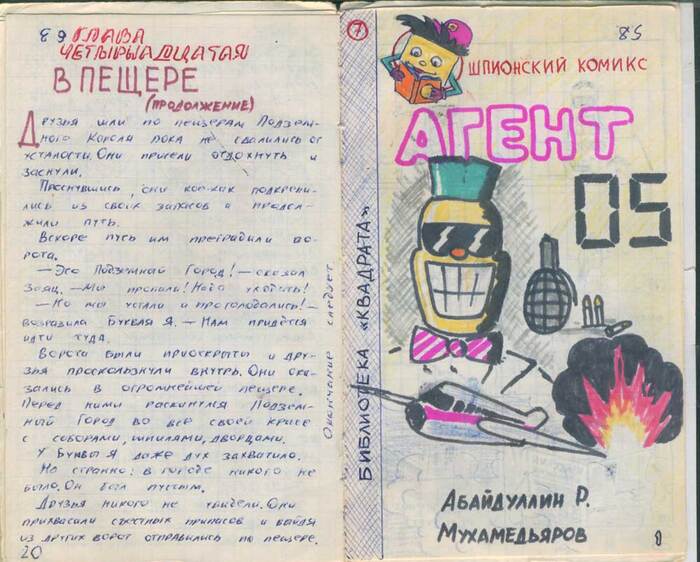 89 ГЛАВА
ЧЕТЫРНАДЦАТАЯ
В ПЕЩЕРЕ
(ПРОДОЛЖЕНИЕ)
Друзья шли по пещерам Подзем-
ного Короля пока не свалились от
усталости. Они присели отдохнуть и
заснули.
Проснувшись, они кое-как подкрепи-
лись из своих запасов и продол-
жили путь.
Вскоре путь им преградили во-
рота.
— Это Подземный Город! — сказал
Заяц. — Мы пропали! Надо уходить!
— Но мы устали и проголодались! —
возразила Буквая Я. — Нам придётся
идти туда.
Ворота были приоткрыты и дру-
зья проскользнули внутрь. Они ока-
зались в огромнейшей пещере.
Перед ними раскинулся Подзем-
ный Город во всей своей красе
с соборами, шпилями, дворцами.
У Буквы Я даже дух захватило.
Но странно: в городе никого не
было. Он был пустым.
Друзья никого не увидели. Они
прихватили съестных припасов и выйдя
из других ворот отправились по пещере.
20
Окончание следует
7
БИБЛИОТЕКА «КВАДРАТА»
85
ШПИОНСКИЙ КОМИКС
АГЕНТ
05
АБАЙДУЛЛИН Р.
МУХАМЕДЬЯРОВ
1